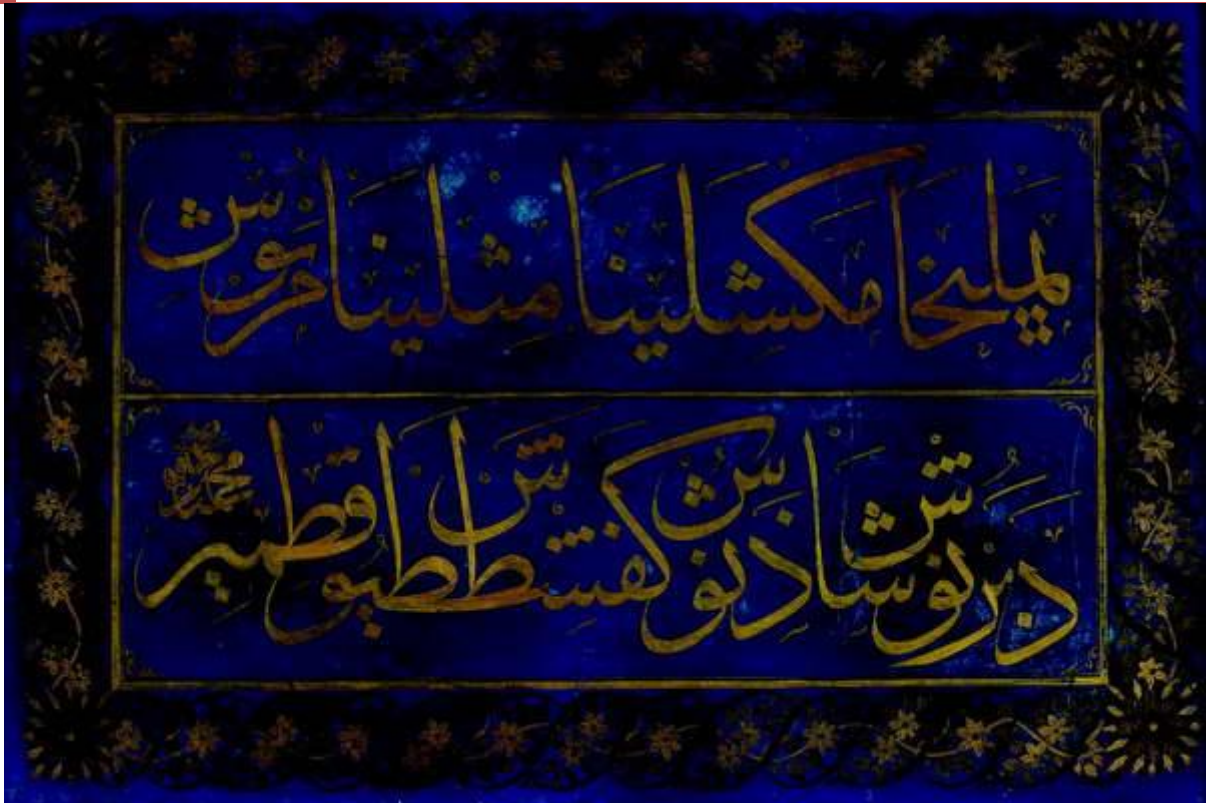 يمليخا مكسلينا مثلينا مرنوش
دبرنوش شاذنوش كفشططيوش قطمير